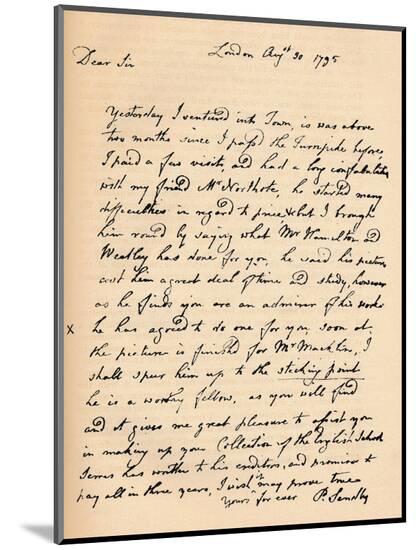 London Augst 30 1795
Dear Sir
Yesterday I ventured into Town, is was above
two months since I passd the Turnpike before,
I paid a few visits, and had a long confabulation
with my friend Mr Northcote, he started many
difficulties in regard to price, but I brough
him round by saying what Mr Hamilton and
Weatley has done for you, he said his pictures
cost him a great deal of time and study, however
as he finds you are an admirer of his works
x he has agreed to do one for you, soon as
the picture is finished for Mr Macklin, I
shall spur him up to the sticking point
he is a worthy fellow, as you will find
and it gives me great pleasure to assist you
in making up your Collection of the English School
Serres has written to his creditors, and promises to
pay all in three years, I wish it may prove true
Yours for ever P. Sandby